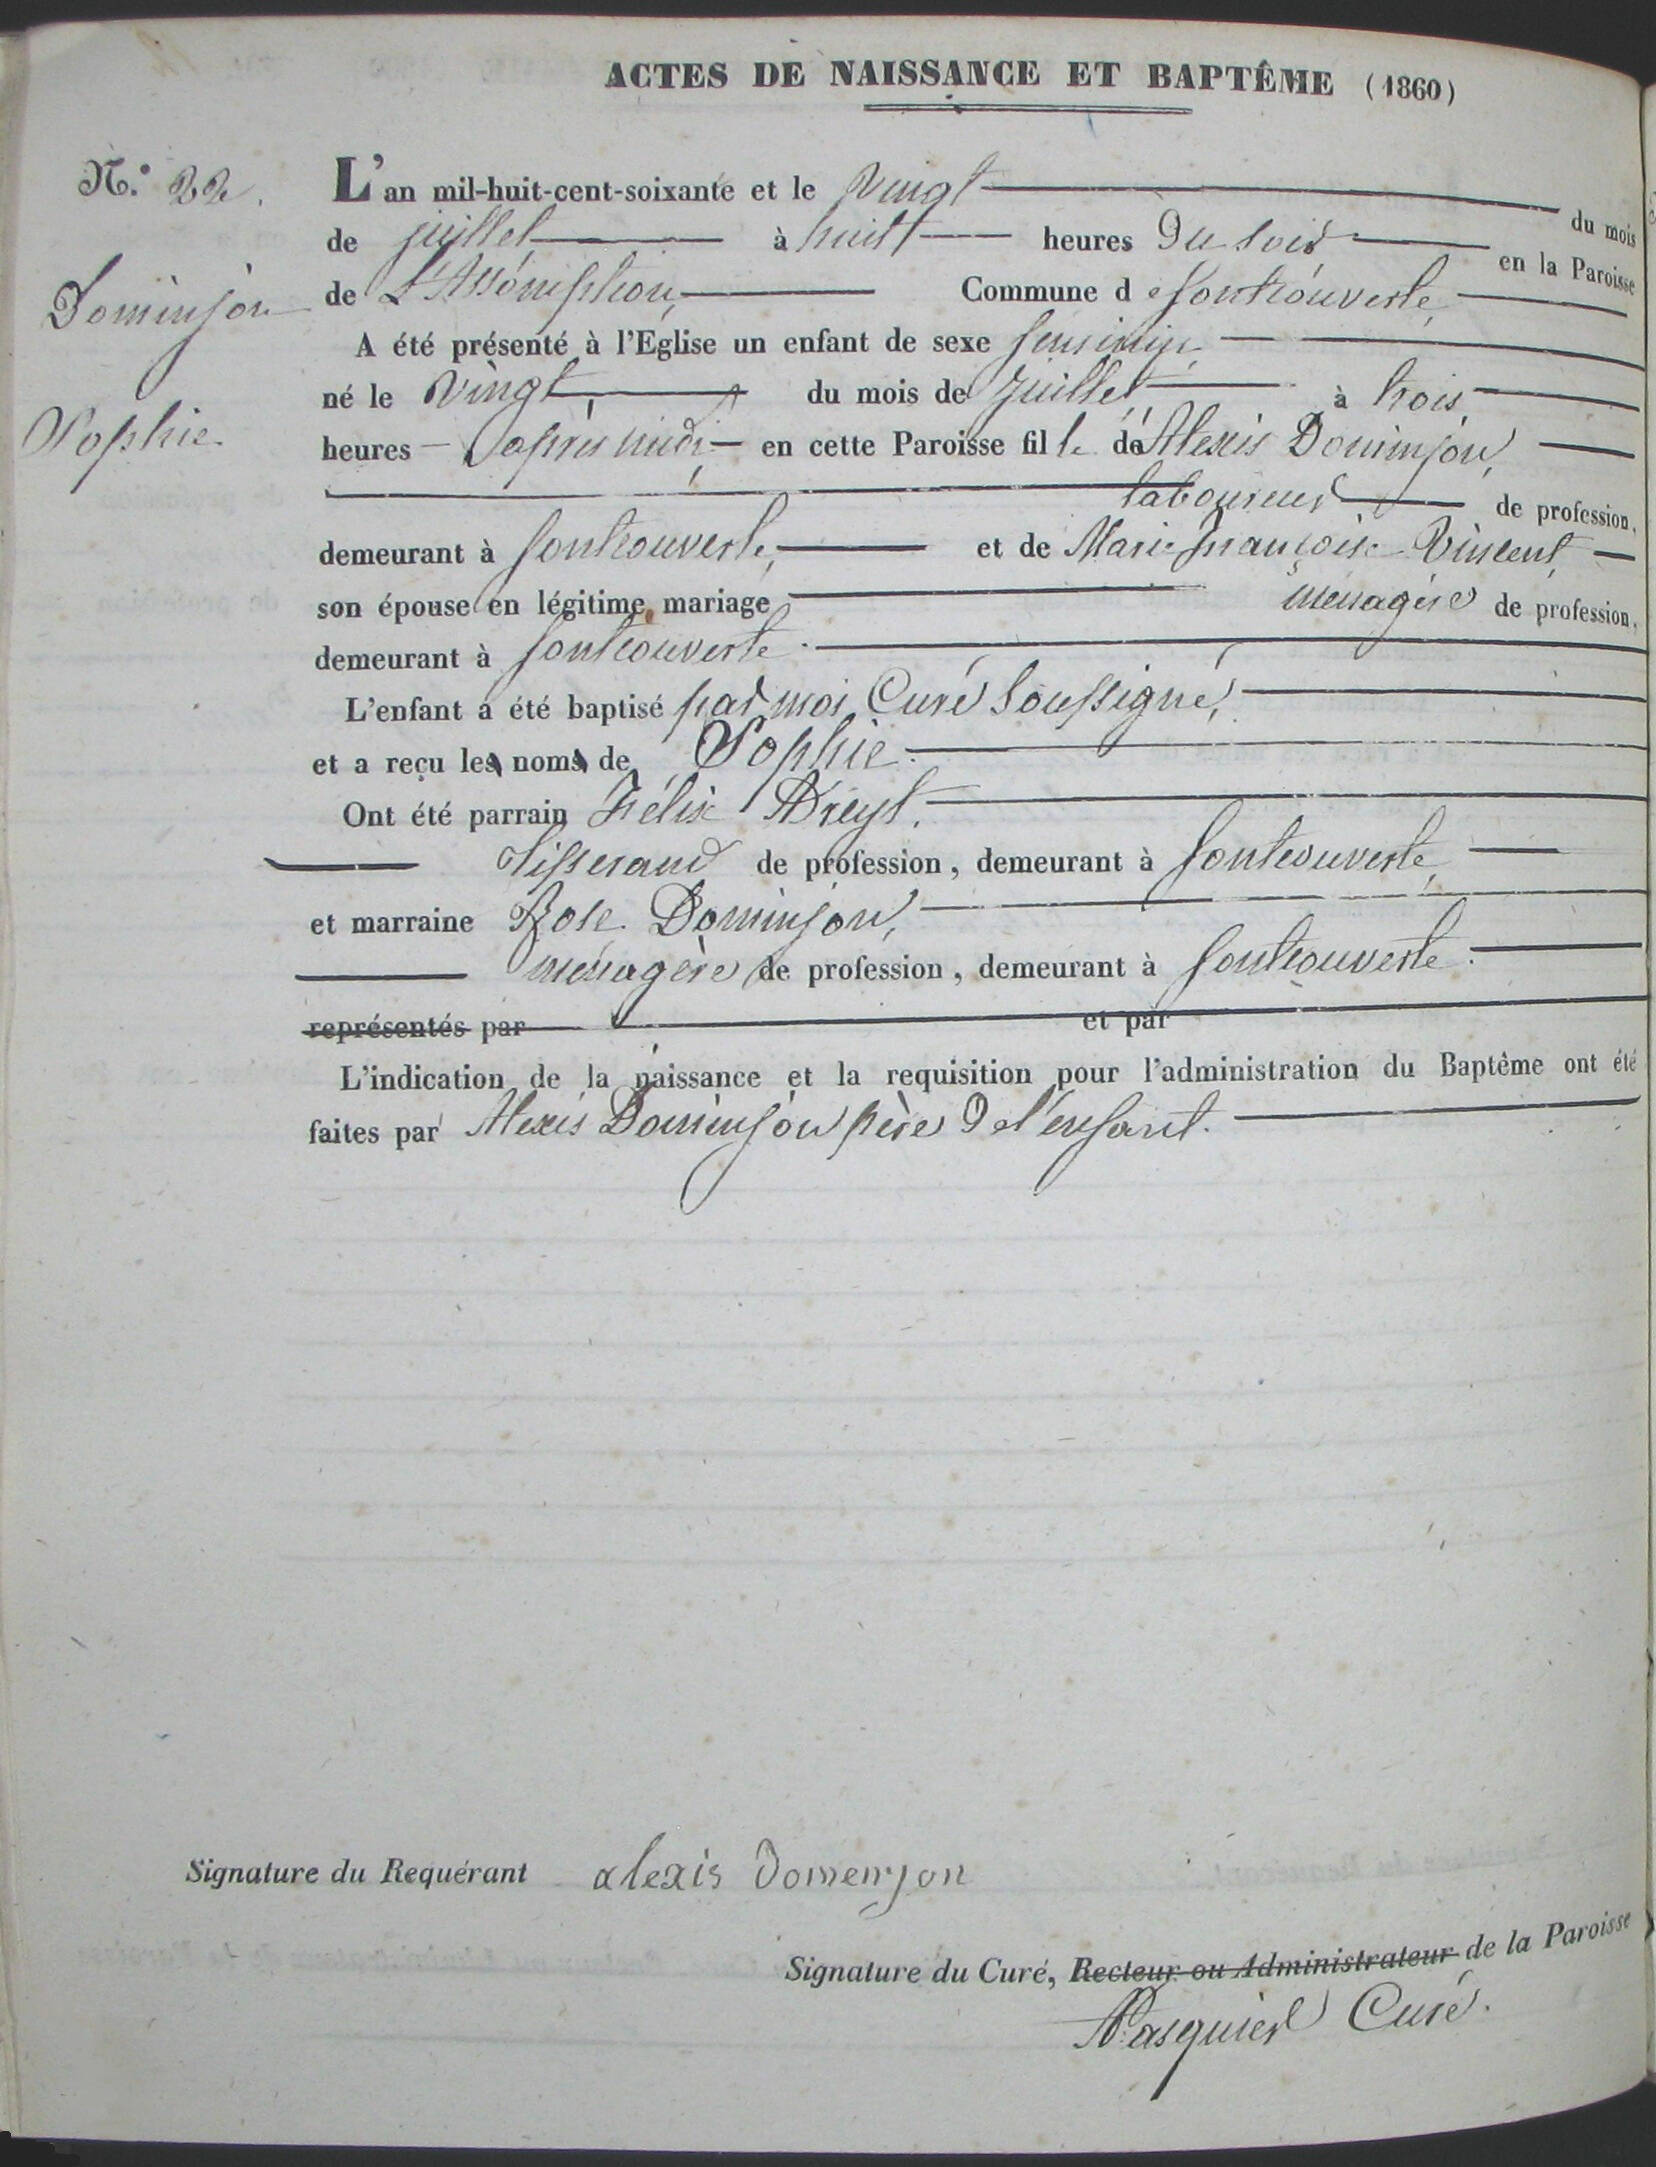 ACTES DE NAISSANCE ET BAPTÊME (1860)
N.° 22.
Dominjon
Sophie
L'an mil-huit-cent-soixante et le vingt du mois
de juillet à huit heures du soir en la Paroisse
de L'Assomption, Commune de fontcouverte,
A été présenté à l'Eglise un enfant de sexe feminin
né le vingt, du mois de juillet à trois
heures d'après midi en cette Paroisse fille de Alexis Dominjon,
laboureur de profession,
demeurant à fontcouverte, et de Marie françoise Vincent,
son épouse en légitime mariage ménagère de profession,
demeurant à fontcouverte.
L'enfant a été baptisé par moi Curé Soussigné,
et a reçu les noms de Sophie.
Ont été parrain Félix
tisserand de profession, demeurant à fontcouverte,
et marraine Rose Dominjon,
ménagère de profession, demeurant à fontcouverte.
représentés par et par
L'indication de la naissance et la requisition pour l'administration du Baptême ont été
faites par Alexis Dominjon père de l'enfant.
Signature du Requérant alexis Domenjon
Signature du Curé, Recteur ou Administrateur de la Paroisse
Pasquier Curé.